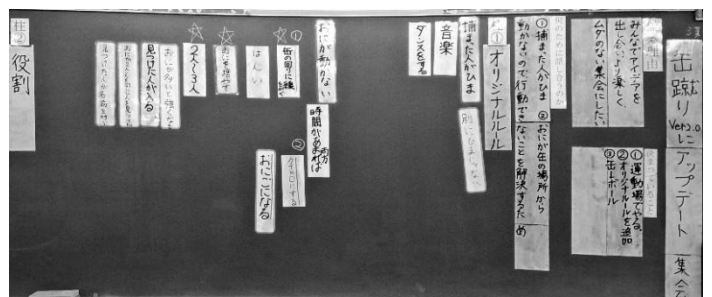 缶蹴り
Ver2.0
に
アップデート
集会
提案理由
みんなでアイデアを
出し合いより楽しく、
ムダのない集会にしたい
決まっていること
①運動場でやる。
②オリジナルルールを追加
③缶とボール
何のために話し合うのか
①捕まった人がひま ②おにが缶の場所から
動かないので行動できないことを解決するため
柱①
オリジナルルール
捕まった人がひま
別にひまじゃない
音楽
ダンスをする
おにが動かない
時間があまれば
両方
①
缶の周りに線
②
おにごっこになる
はんい
おにを増やす
2人〜3人
見つけた人が入る
柱②
役割